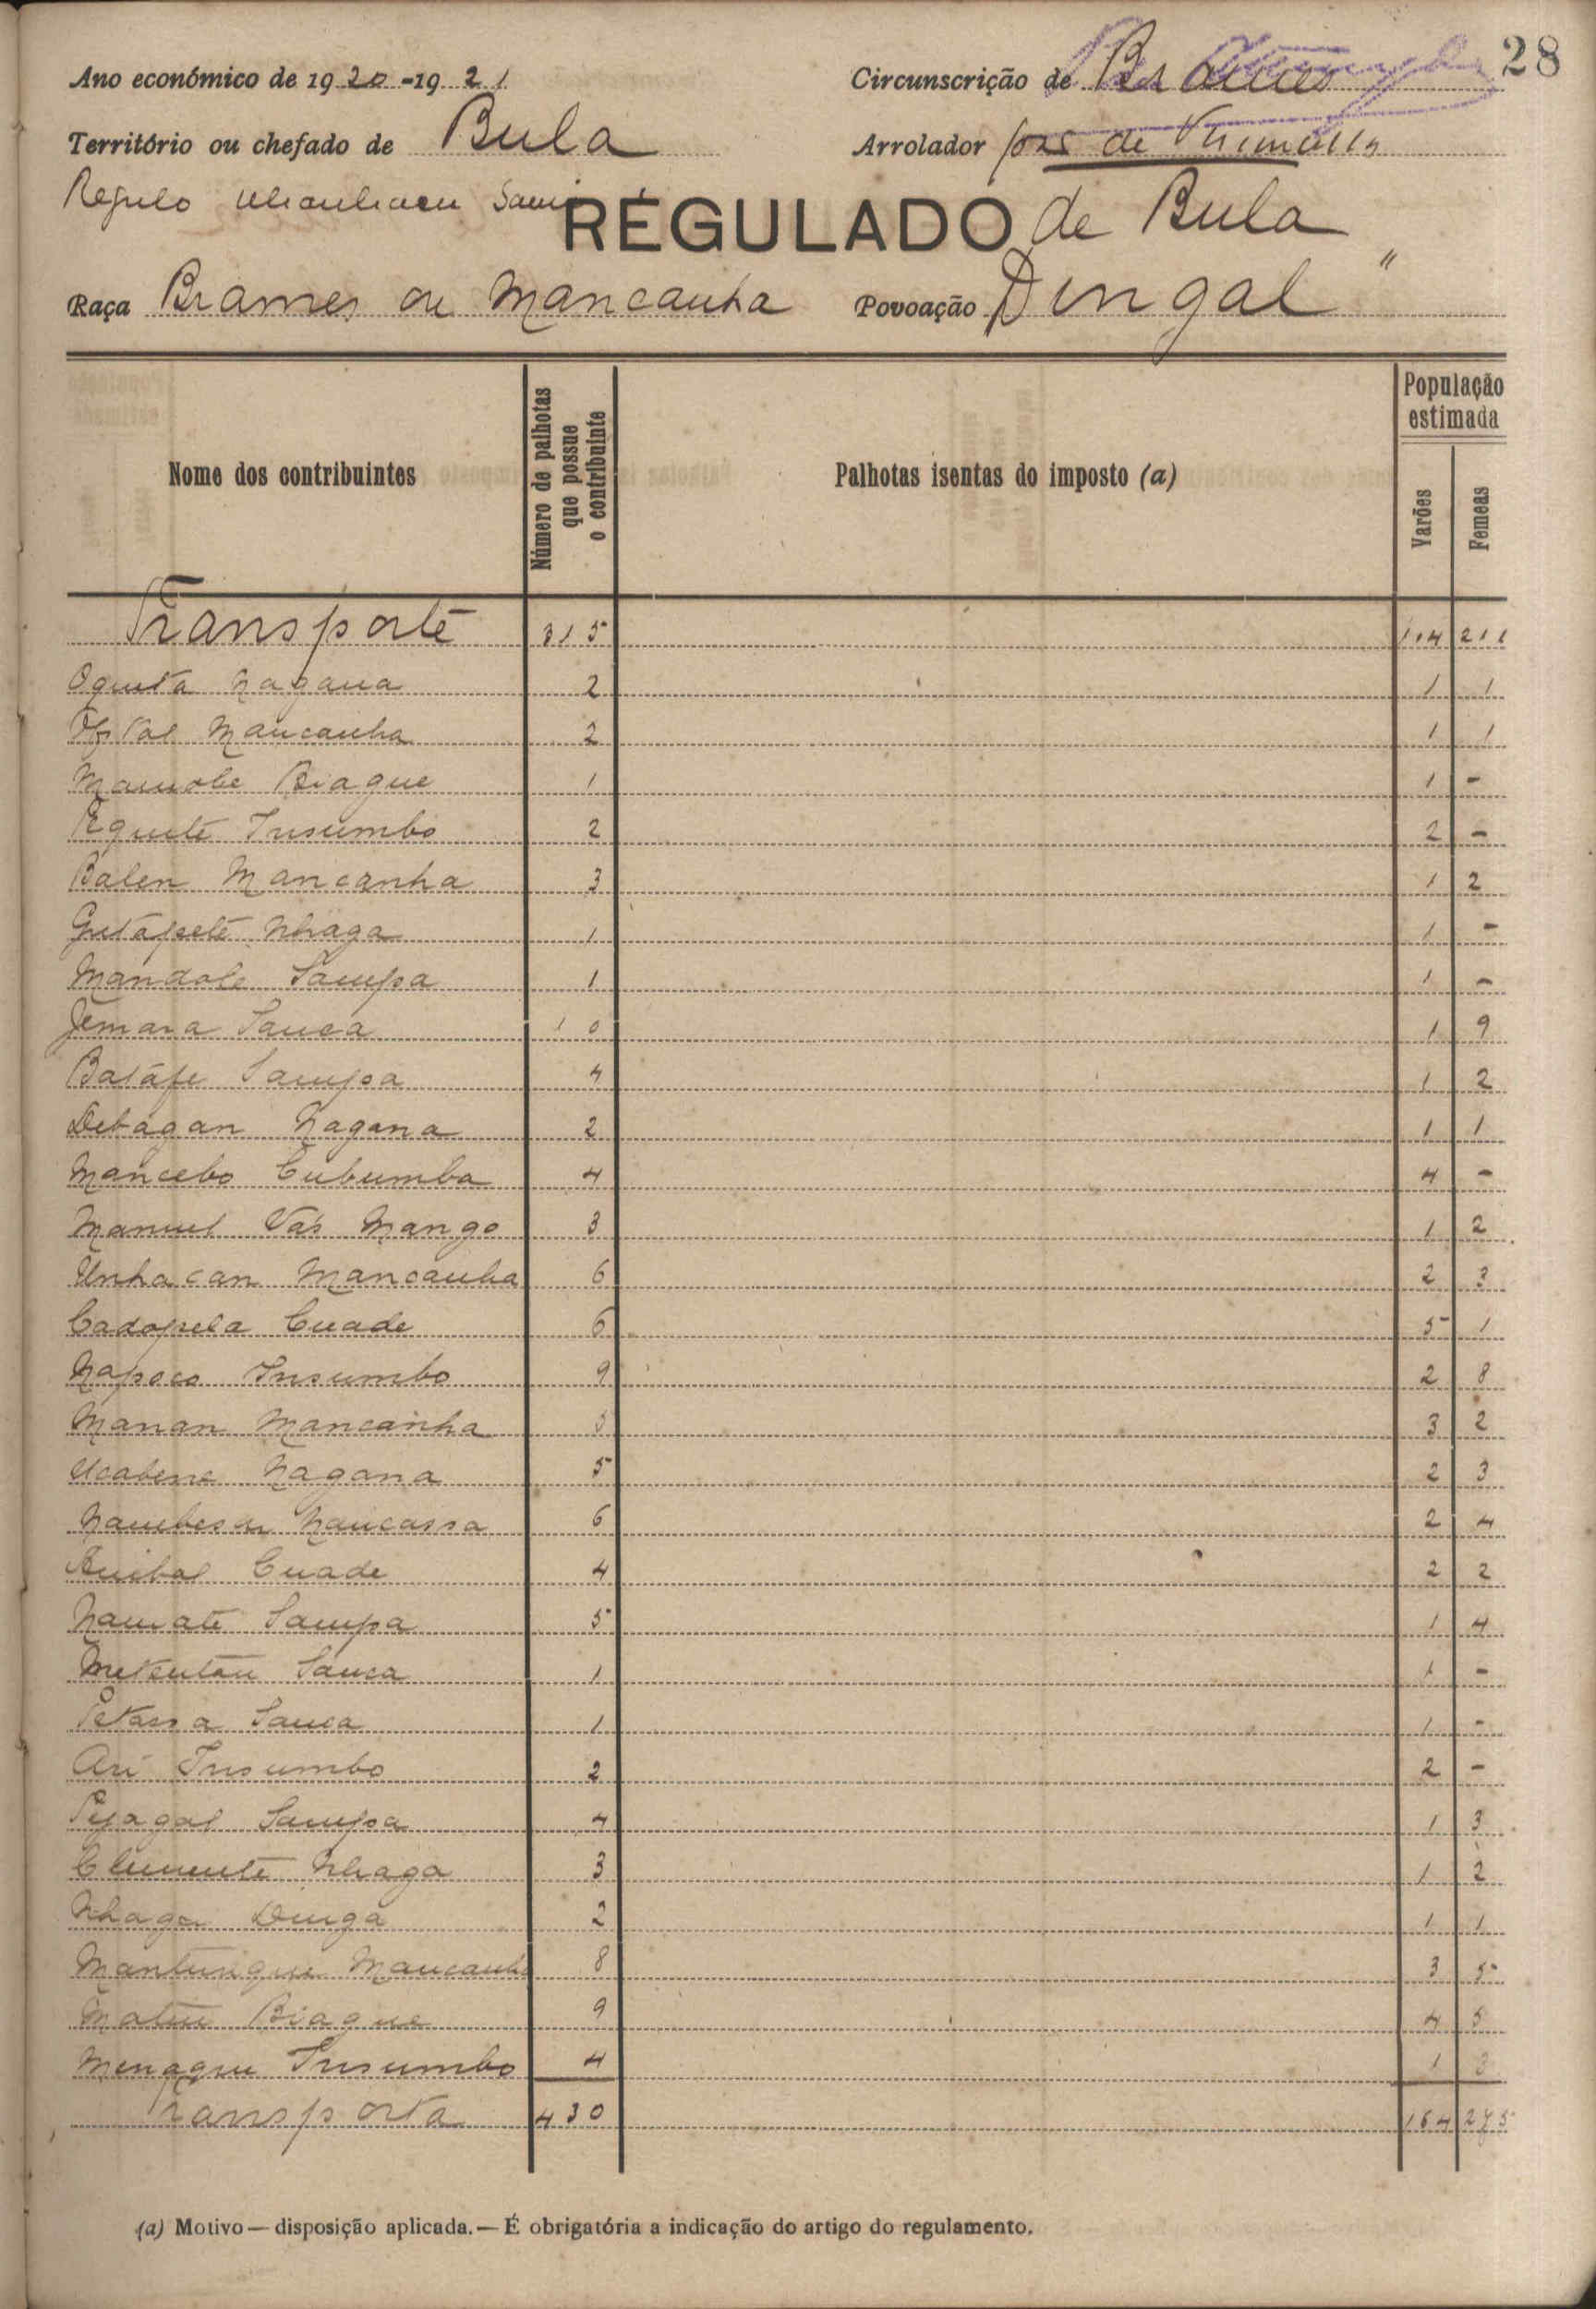 28
Ano económico de 1920-1921 Circunscrição de Brames
Território ou chefado de Bula Arrolador José de
Regulo
RÉGULADO de Bula
Raça Brames ou Mancanha Povoação Dingal "
Nome dos contribuintes Número de palhotas que possue o contribuinte Palhotas isentas do imposto (a) População estimada Varões Femeas
Transporte 315 104 211
Oquita Nagana 2 1 1
Mancanha 2 1 1
Mamobe Biague 1 1 -
Pequete Insumbo 2 2 -
Balen Mancanha 3 1 2
Gutapetе Nhaga 1 1 -
Mandole Sampa 1 1 -
Jemara Sanca 10 1 9
Batáfe Sampa 4 1 2
Debagan Nagana 2 1 1
Mancebo Cubumba 4 4 -
Manuel Vás Mango 3 1 2
Unhacan Mancanha 6 2 3
Cadopela Cuade 6 5 1
Napoco Insumbo 9 2 8
Manan Mancanha 5 3 2
Ucabene Nagana 5 2 3
Nancassa 6 2 4
Anibal Cuade 4 2 2
Namate Sampa 5 1 4
Sanca 1 1 -
Petassa Sanca 1 1 -
Ari Insumbo 2 2 -
Pejagal Sampa 4 1 3
Clemente Nhaga 3 1 2
Nhaga Dinga 2 1 1
Mantungue Mancanha 8 3 5
Matu Biague 9 4 5
Menaque Insumbo 4 1 3
Transporta 430 164 275
(a) Motivo — disposição aplicada. — É obrigatória a indicação do artigo do regulamento.